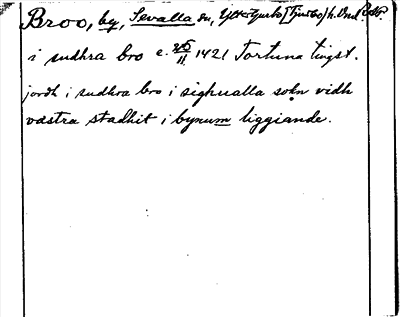 Broo, by, Sevalla sn, Yttertjurbo (Tjurbo) h. Vml
i sudhra bro c. 25/11 1421 Tortuna tingst.
jordh i sudhra bro i sighualla sokn vidh
vastra stadhit i bynum liggiande.